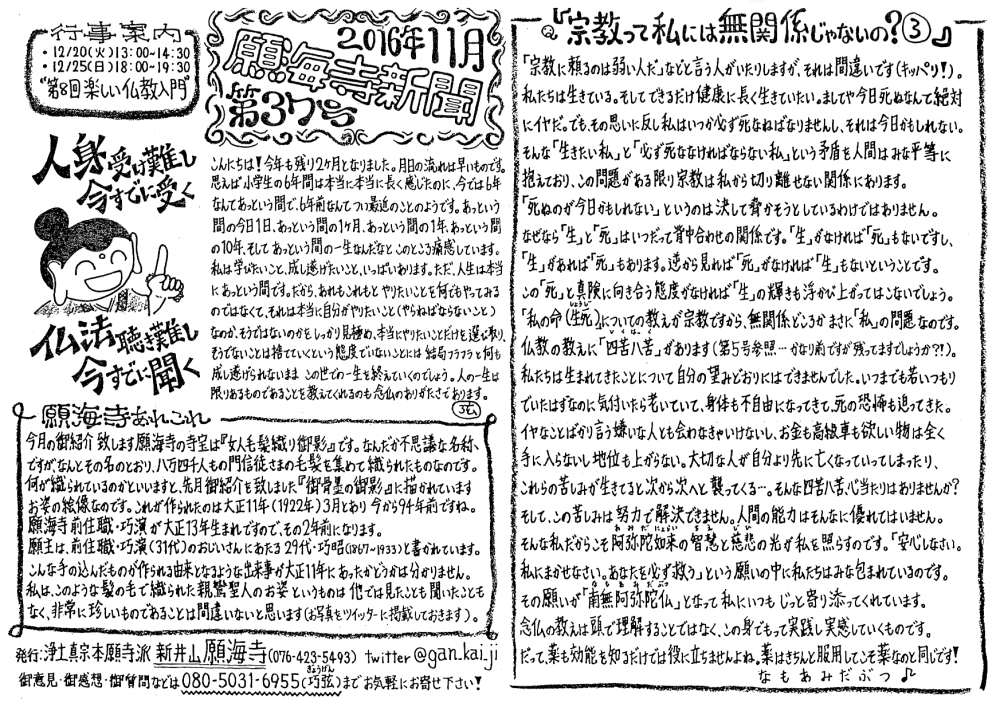 行事案内
・12/20(火)13:00~14:30
・12/25(日)18:00~19:30
"第8回楽しい仏教入門"
2016年11月
願海寺新聞
第37号
人身受け難し
今すでに受く
仏法聴き難し
今すでに聞く
こんにちは!今年も残り2ヶ月となりました。月日の流れは早いものです。
思えば小学生の6年間は本当に本当に長く感じたのに、今では6年
なんてあっという間で、6年前なんてつい最近のことのようです。あっという
間の今日1日、あっという間の1ヶ月、あっという間の1年、あっという間
の10年、そしてあっという間の一生なんだなと このところ痛感しています。
私は学びたいこと、成し遂げたいこと、いっぱいあります。ただ、人生は本当
にあっという間です。だから、あれもこれもと やりたいことを何でもやってみる
のではなくて、それは本当に自分がやりたいこと(やらねばならないこと)
なのか、そうではないのかをしっかり見極め、本当にやりたいことだけを選び取り、
そうでないことは捨てていくという態度でいないことには 結局フラフラと何も
成し遂げられないまま この世での一生を終えていくのでしょう。人の一生は
限りあるものであることを教えてくれるのも 念仏のありがたさであります。
願海寺あれこれ
㊲
今月の御紹介致します願海寺の寺宝は『女人毛髪織り御影』です。なんだか不思議な名称、
ですが、なんとその名のとおり、八万四千人もの門信徒さまの毛髪を集めて織られたものなのです。
何が織られているのかといいますと、先月御紹介を致しました『御骨墨の御影』に描かれています
お姿の絵像なのです。これが作られたのは大正11年(1922年)3月とあり 今から94年前ですね。
願海寺前住職・巧演が大正13年生まれですので、その2年前になります。
願主は、前住職・巧演(31代)のおじいさんにあたる 29代・巧昭(1867~1933)と書かれています。
こんな手の込んだものが作られる由来となるような出来事が大正11年にあったかどうかは分かりません。
私は、このような 髪の毛で織られた親鸞聖人のお姿というものは 他では見たことも聞いたことも
なく、非常に珍しいものであることは間違いないと思います(お写真をツイッターに掲載しておきます)。
発行:浄土真宗本願寺派 新井山願海寺(076-423-5493) twitter@gan_kai_ji
御意見・御感想・御質問などは080-5031-6955(巧弦)までお気軽にお寄せ下さい!
『Q.宗教って私には無関係じゃないの?③』
「宗教に頼るのは弱い人だ」などと言う人がいたりしますが、それは間違いです(キッパリ!)。
私たちは生きている。そしてできるだけ健康に長く生きていたい。ましてや今日死ぬなんて絶対
にイヤだ。でも、その思いに反し私はいつか必ず死なねばなりませんし、それは今日かもしれない。
そんな「生きたい私」と「必ず死ななければならない私」という矛盾を人間はみな平等に
抱えており、この問題がある限り宗教は私から切り離せない関係にあります。
「死ぬのが今日かもしれない」というのは決して脅かそうとしているわけではありません。
なぜなら「生」と「死」はいつだって背中合わせの関係です。「生」がなければ「死」もないですし、
「生」があれば「死」もあります。逆から見れば「死」がなければ「生」もないということです。
この「死」と真険に向き合う態度がなければ「生」の輝きも浮かび上がってはこないでしょう。
「私の命(生死)」についての教えが宗教ですから、無関係どころか まさに「私」の問題なのです。
仏教の教えに「四苦八苦」があります(第5号参照…かなり前ですが残ってますでしょうか?!)。
私たちは生まれてきたことについて自分の望みどおりにはできませんでした。いつまでも若いつもり
でいたはずなのに気付いたら老いていて、身体も不自由になってきて、死の恐怖も迫ってきた。
イヤなことばかり言う嫌いな人とも会わなきゃいけないし、お金も高級車も欲しい物は全く
手に入らないし地位も上がらない。大切な人が自分より先に亡くなっていってしまったり、
これらの苦しみが生きてると次から次へと襲ってくる…。そんな四苦八苦、心当たりはありませんか?
そして、この苦しみは努力で解決できません。人間の能力はそんなに優れてはいません。
そんな私だからこそ阿弥陀如来の智慧と慈悲の光が私を照らすのです。「安心しなさい。
私にまかせなさい。あなたを必ず救う」という願いの中に私たちはみな包まれているのです。
その願いが「南無阿弥陀仏」となって私にいつもじっと寄り添ってくれています。
念仏の教えは頭で理解することではなく、この身でもって実践し実感していくものです。
だって、薬も効能を知るだけでは役に立ちませんよね。薬はきちんと服用してこそ薬なのと同じです!
なもあみだぶつ♪